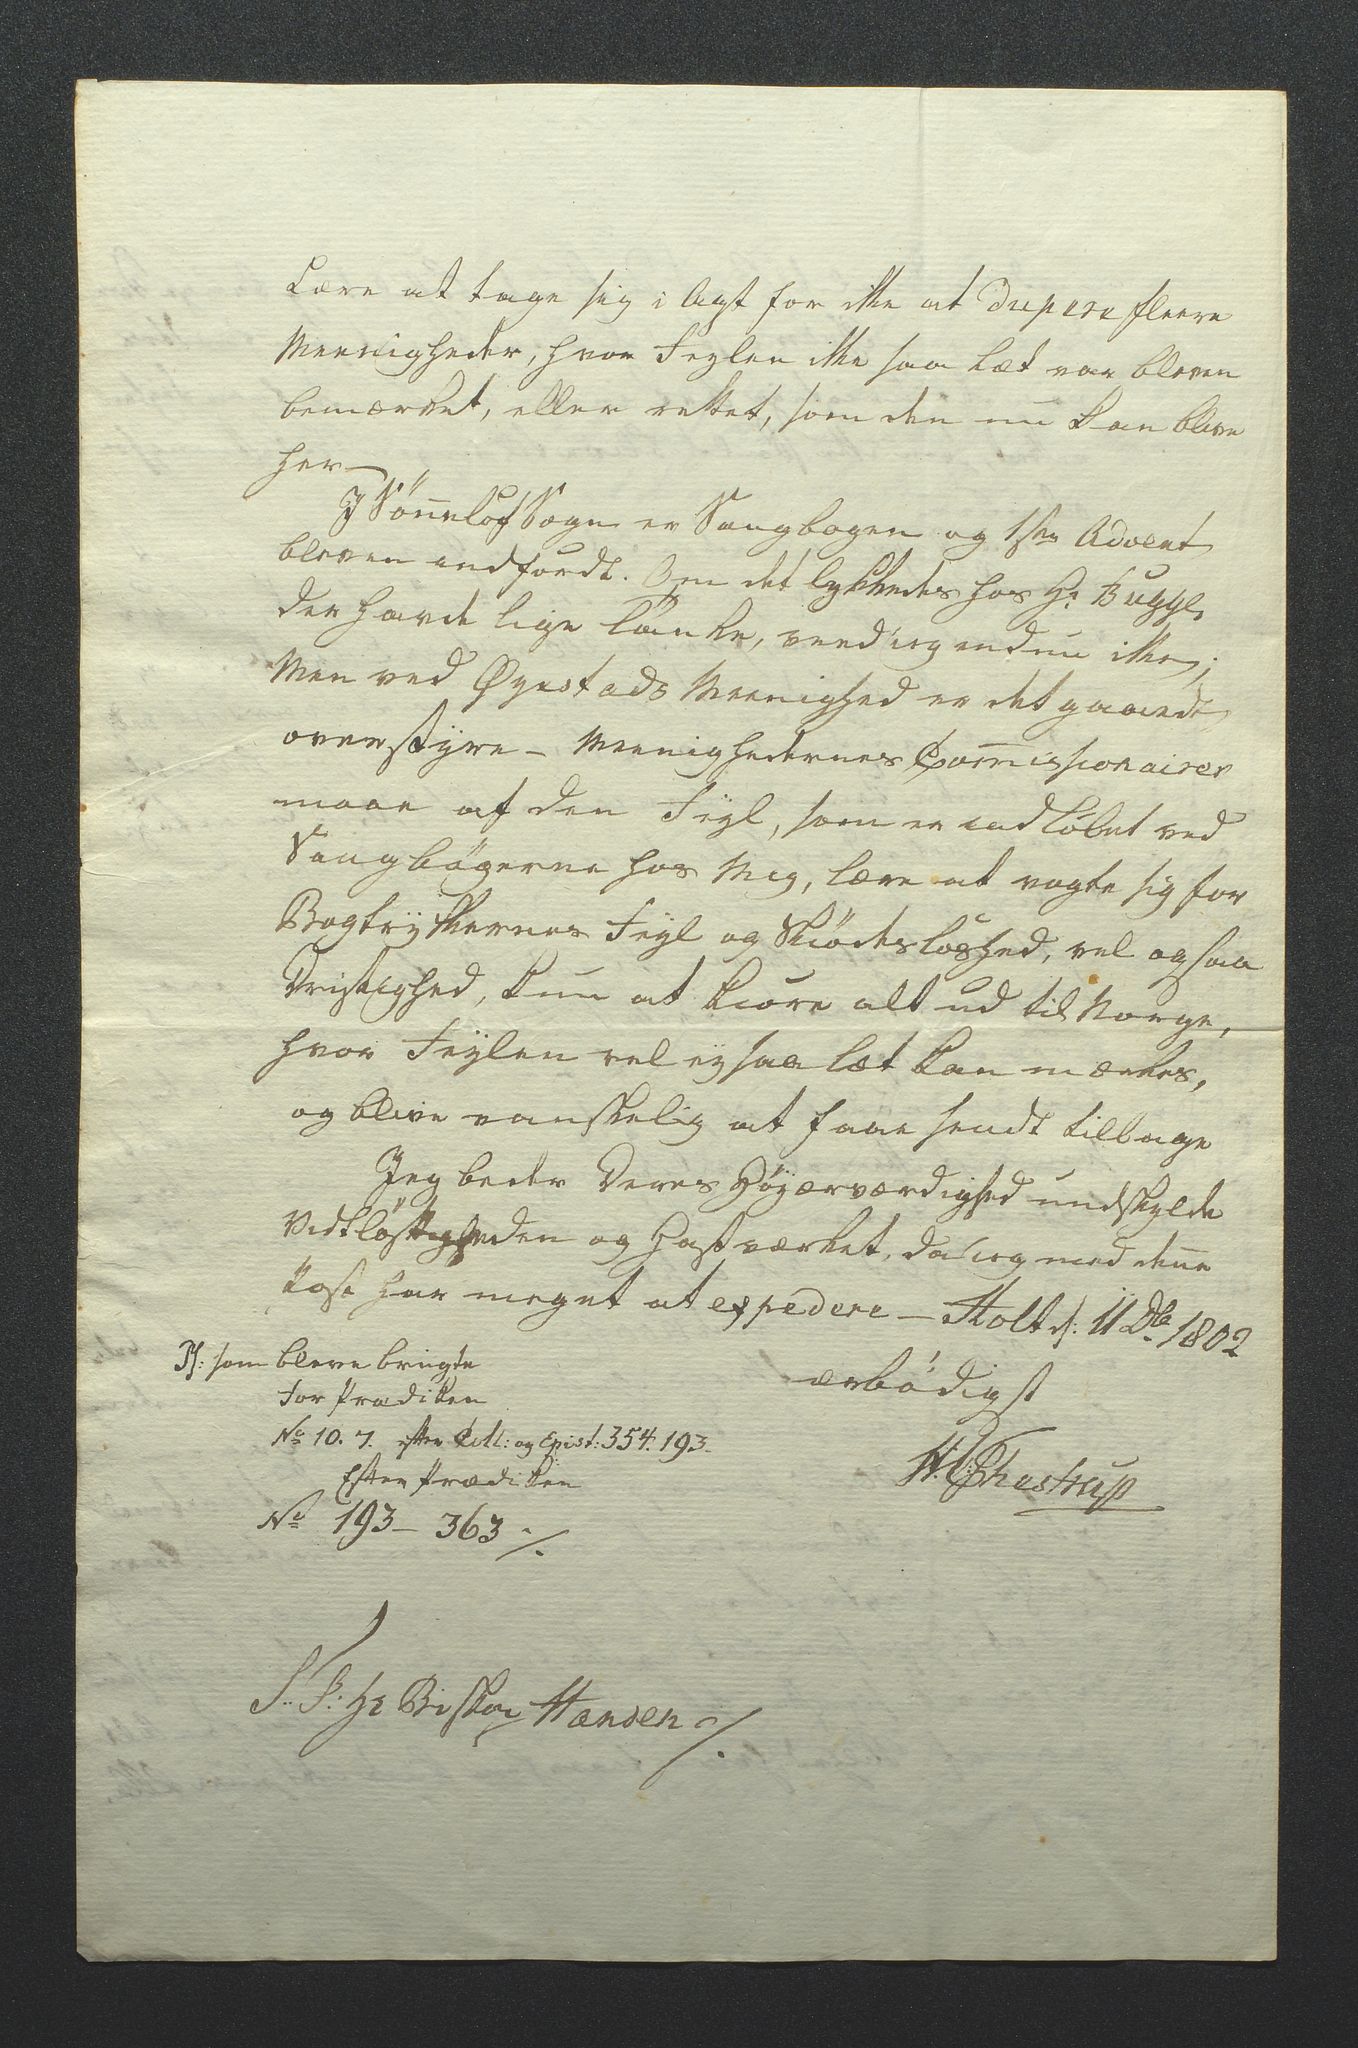 Lære at tage sig i Agt for ikke at dupere fleere
Meenigheder, hvor Feylen ikke saa Læt var bleven
bemærket, eller rettet, som den nu kan blive
her —
I Sönneløf Sogn er Sangbogen og 1ste Advent
bleven indfördt. Om det lykkedes hos Hr Bugge,
der havde lige Tanke, veed ieg endnu ikke;
Men ved Øyestads Meenighed er det gaaedt
over styre — Meenighedernes Com̄issionairer
maae af den Feyl, som er indløbet ved
Sangbøgerne hos Mig, lære at vogte sig for
Bogtrykkernes Feyl og Skiødesløshed, vel ogsaa
Dristighed, kun at kiöre alt ud til Norge,
hvor Feylen vel ey saa læt kan mærkes,
og blive vanskelig at faae sendt tilbage
Jeg beder Deres Høyærværdighed undskylde
Vidtløftigheden og Hastværket, da ieg med den̄e
Post har meget at expedere — Holt d: 11 Dbr 1802
Ps: som bleve brugte
For Prædiken
No 10. 7. efter Coll: og Epist: 354. 193.
Efter Prædiken
No 193 — 363 ./.
ærbödigst
S. T. Hr Biskop Hansen ./.